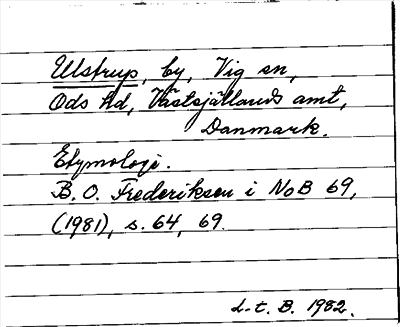 Ullstrup, by, Vig sn,
Ods hd, Västsjällands amt,
Danmark.
Etymologi.
B. O. Frederiksen i NoB 69,
(1981), s. 64, 69.
L-t. B. 1982.